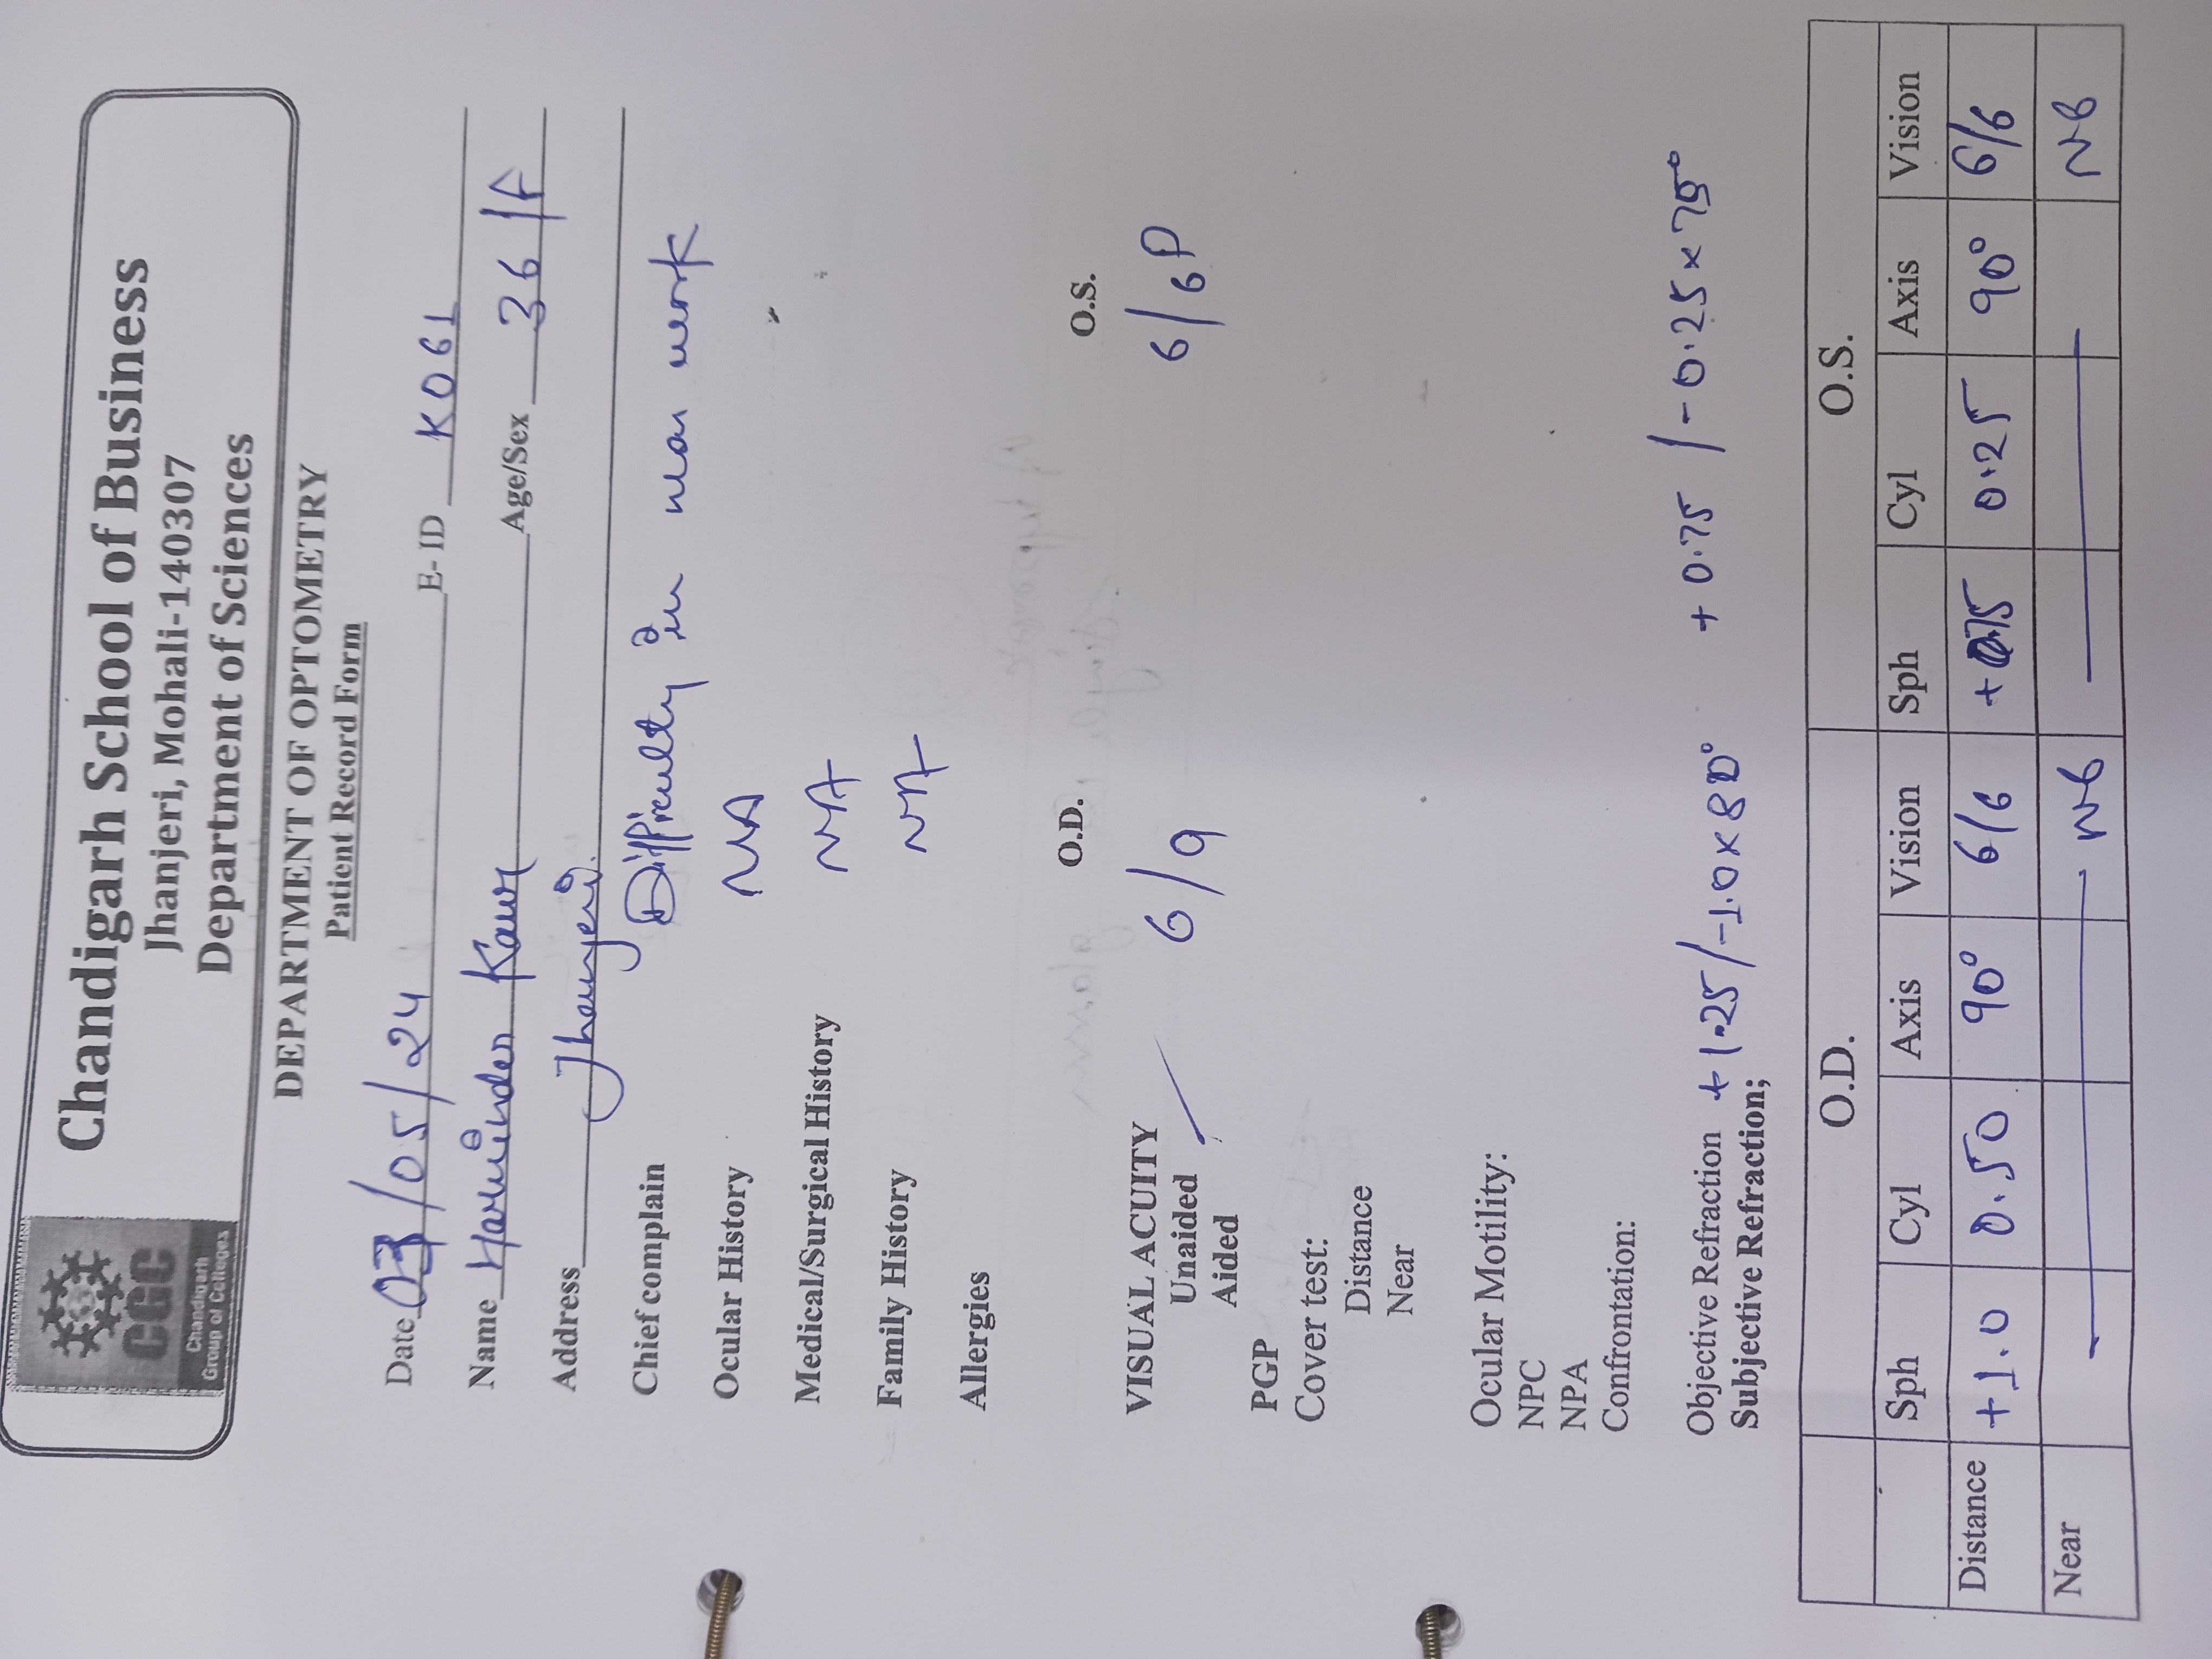 CGC
Chandigarh
Group of Colleges
Chandigarh School of Business
Jhanjeri, Mohali-140307
Department of Sciences
DEPARTMENT OF OPTOMETRY
Patient Record Form
Date 03/05/24 E- ID K061
Name Harwinder Kaur Age/Sex 36/F
Address Jhanjeri.
Chief complain Difficulty in near work
Ocular History NA
Medical/Surgical History NA
Family History NA
Allergies
O.D. O.S.
VISUAL ACUITY
Unaided 6/9 6/6P
Aided
PGP
Cover test:
Distance
Near
Ocular Motility:
NPC
NPA
Confrontation:
Objective Refraction +1.25/-1.0x80° +0.75/-0.25x75°
Subjective Refraction;
O.D. O.S.
Sph Cyl Axis Vision Sph Cyl Axis Vision
Distance +1.0 0.50 90° 6/6 +0.75 0.25 90° 6/6
Near N6 N6